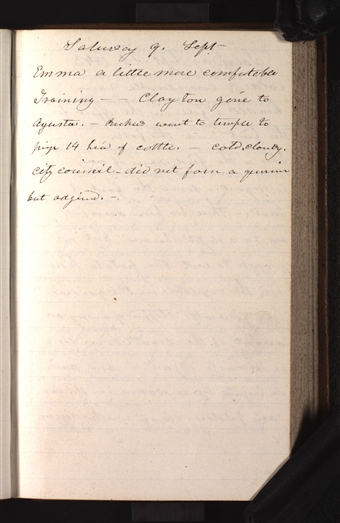 Saturday 9. Sept
Emma a little more comfortable
Training - - Clayton gone to
Agusta. - went to temple to
14 of cattle. - cold, cloudy.
city council - did not form a
but adjind. -